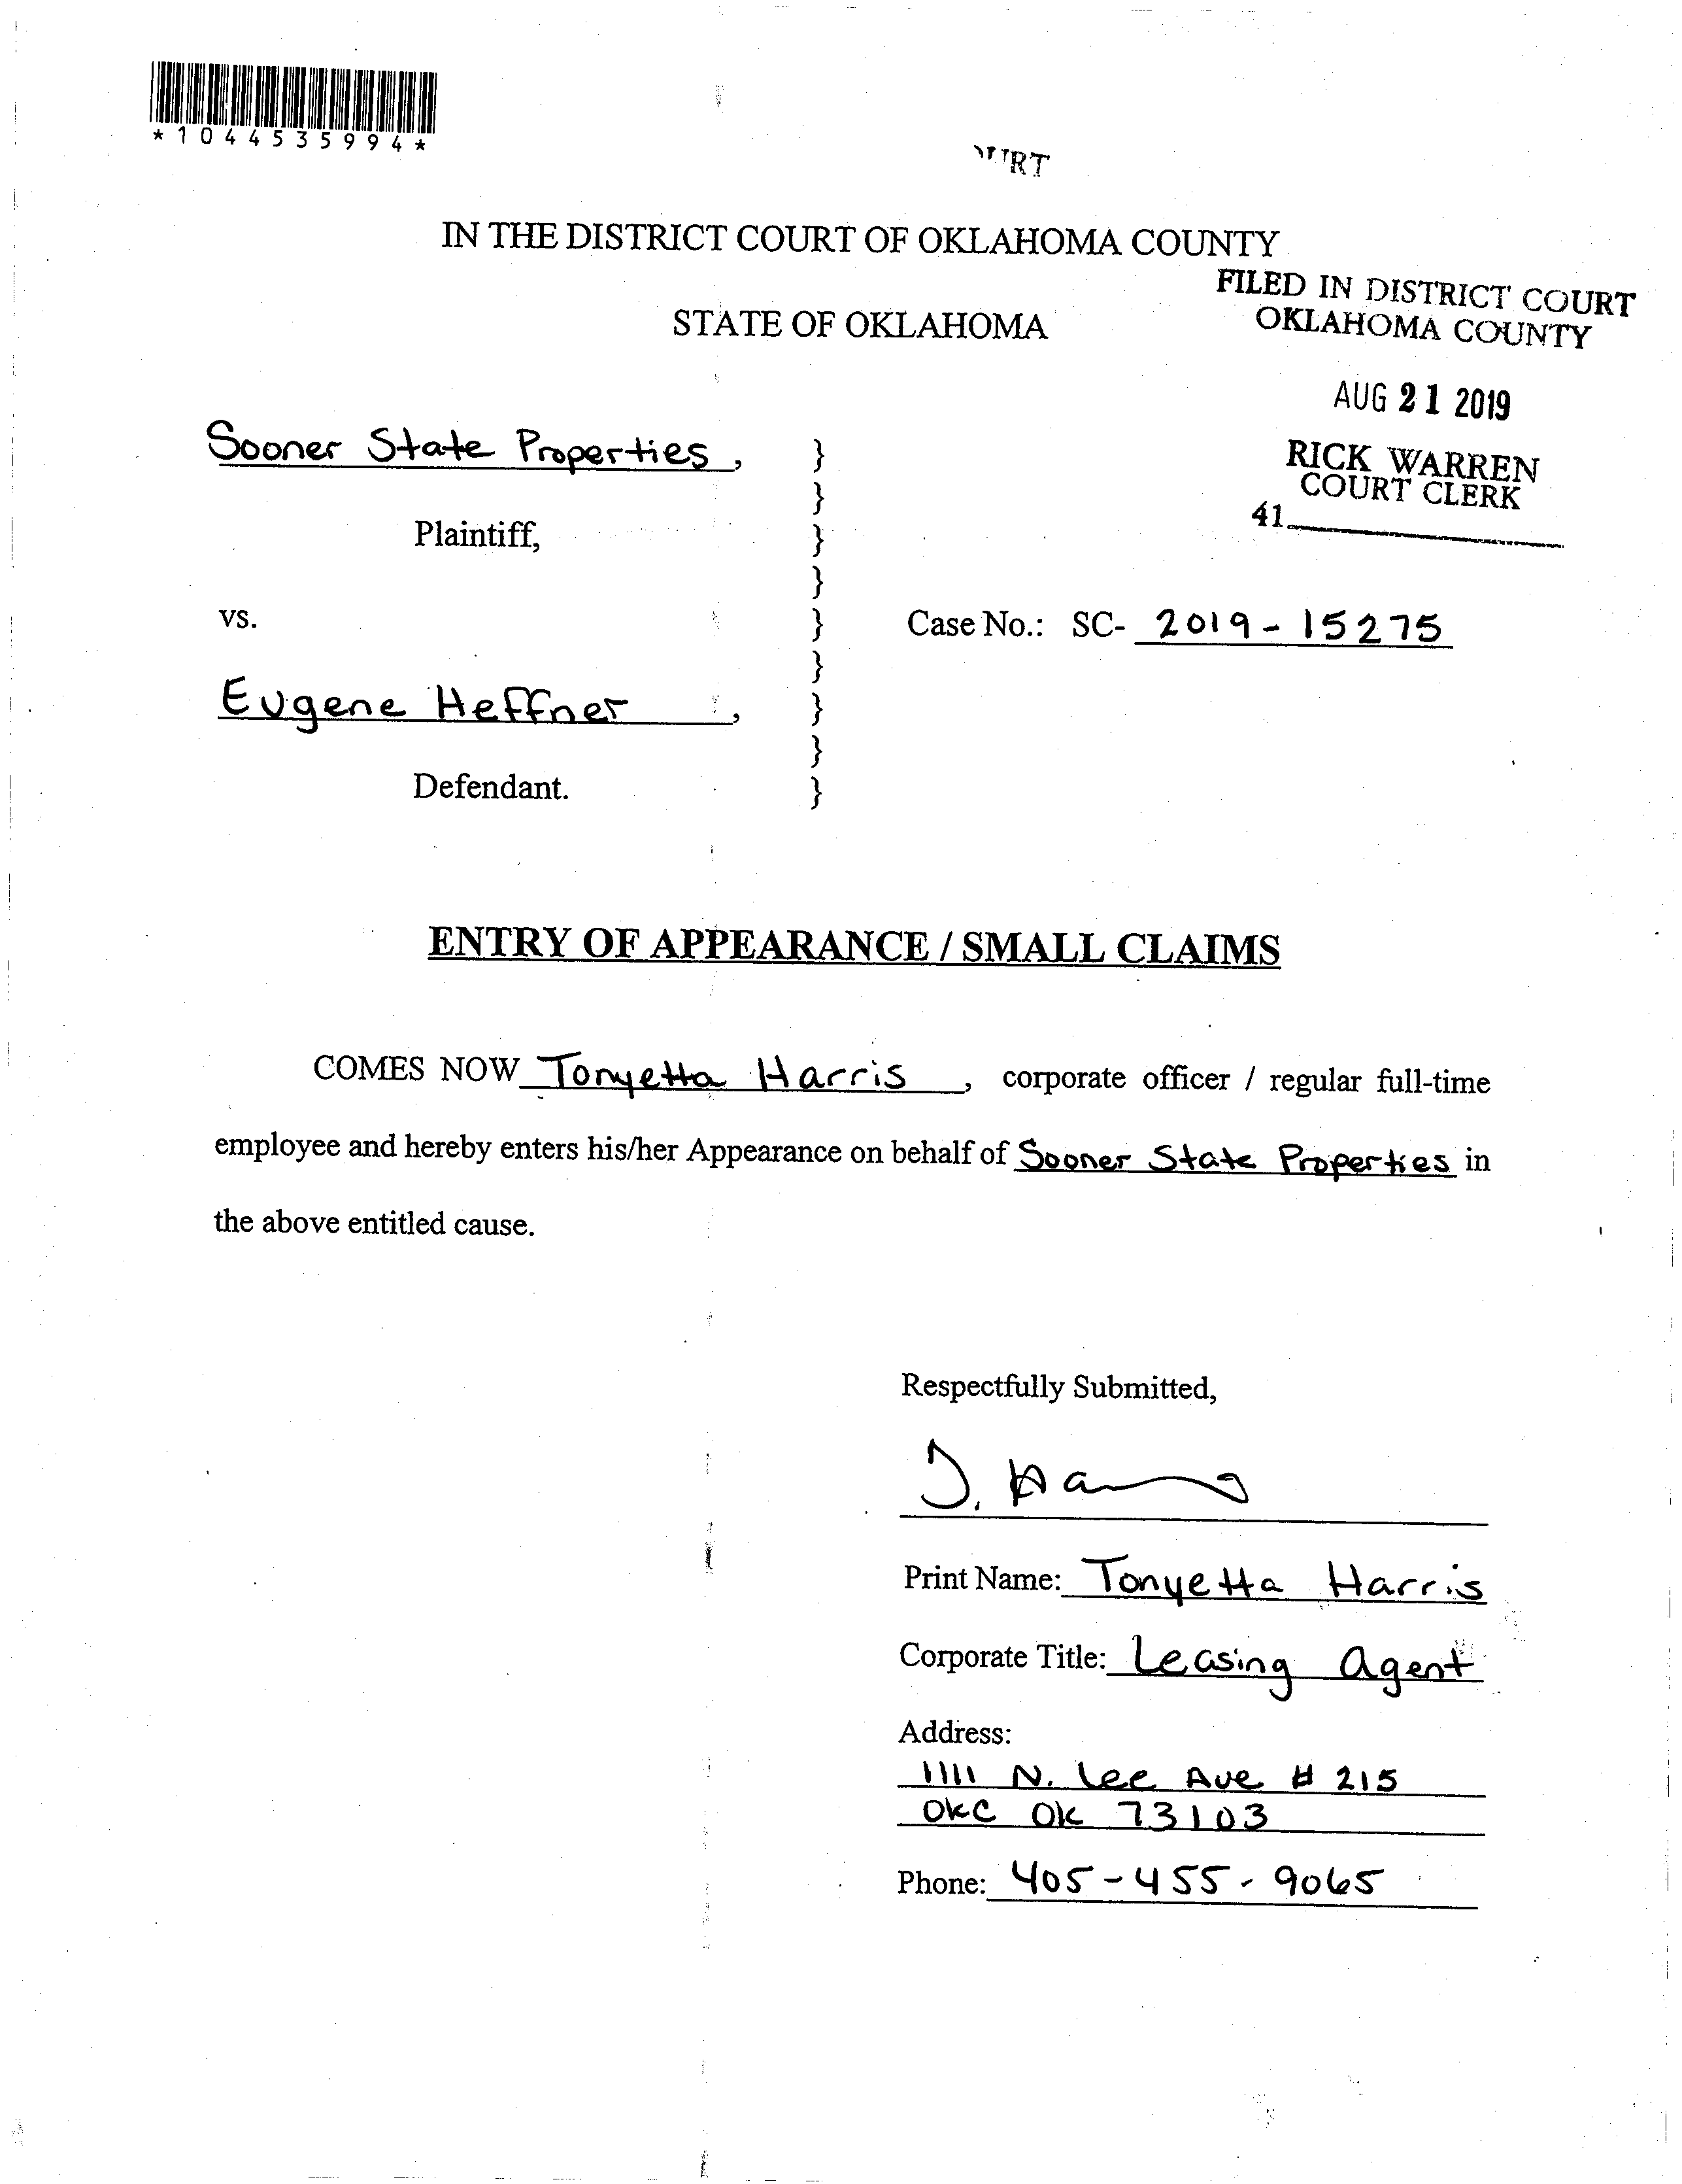 *1044535994*
IN THE DISTRICT COURT OF OKLAHOMA COUNTY
FILED IN DISTRICT COURT
OKLAHOMA COUNTY
STATE OF OKLAHOMA
AUG 21 2019
RICK WARREN
COURT CLERK
41
Sooner State Properties,
Plaintiff,
vs.
Case No.: SC- 2019-15275
Eugene Heffner,
Defendant.
ENTRY OF APPEARANCE / SMALL CLAIMS
COMES NOW Tonyetta Harris, corporate officer / regular full-time
employee and hereby enters his/her Appearance on behalf of Sooner State Properties in
the above entitled cause.
Respectfully Submitted,
T. Ha
Print Name: Tonyetta Harris
Corporate Title: Leasing Agent
Address:
1111 N. Lee Ave # 215
OKC OK 73103
Phone: 405-455-9065